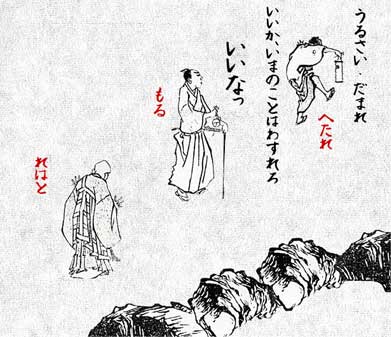 うるさい・だまれ
へたれ
いいか、いまのことはわすれろ
いいなっ
もる
れはと